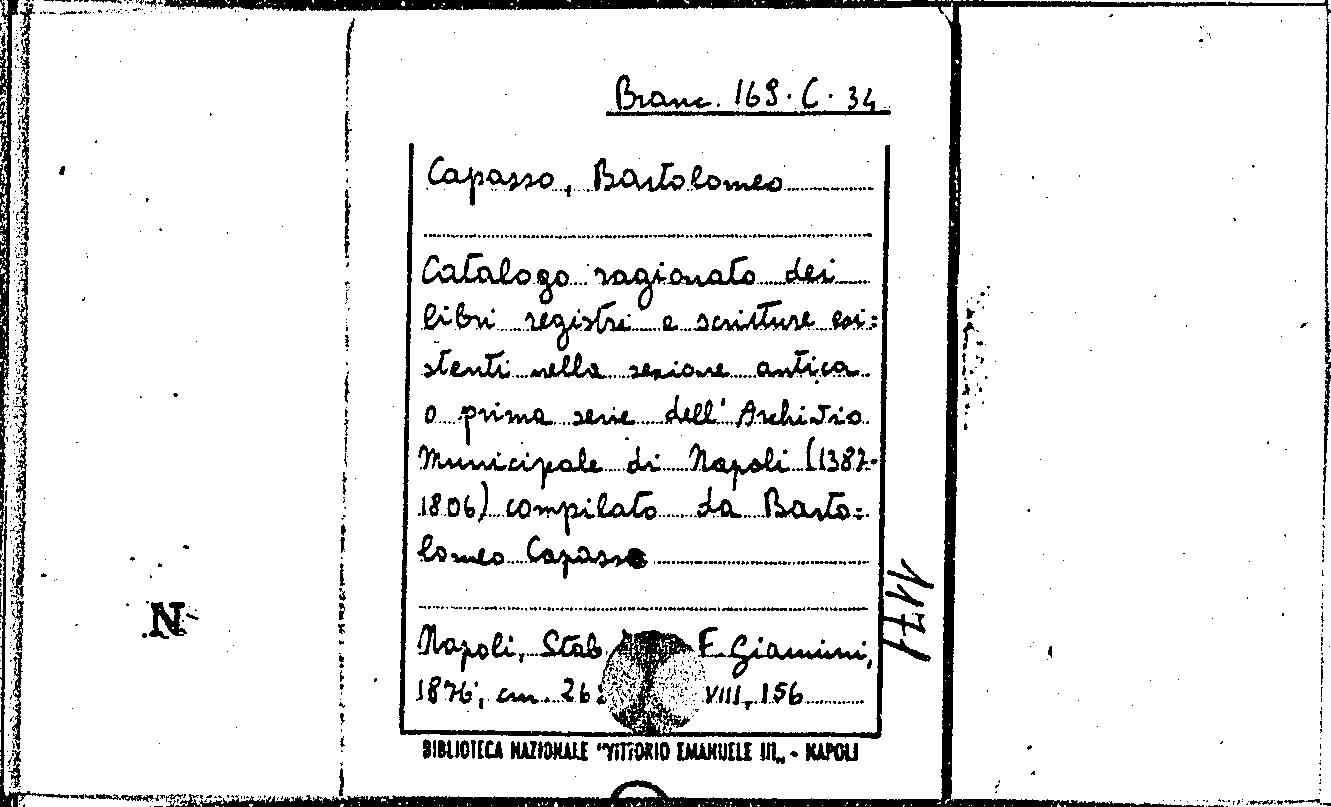 Branc. 169. C. 34
Capasso, Bartolomeo
Catalogo ragionato dei
libri registri e scritture esi=
stenti nella sezione antica
o prima serie dell' Archivio
Municipale di Napoli (1387-
1806) compilato da Barto=
lomeo Capasso
Napoli, Stab F. Giannini,
1876, cm. 26 VIII, 156
BIBLIOTECA NAZIONALE "VITTORIO EMANUELE III„ - NAPOLI
N